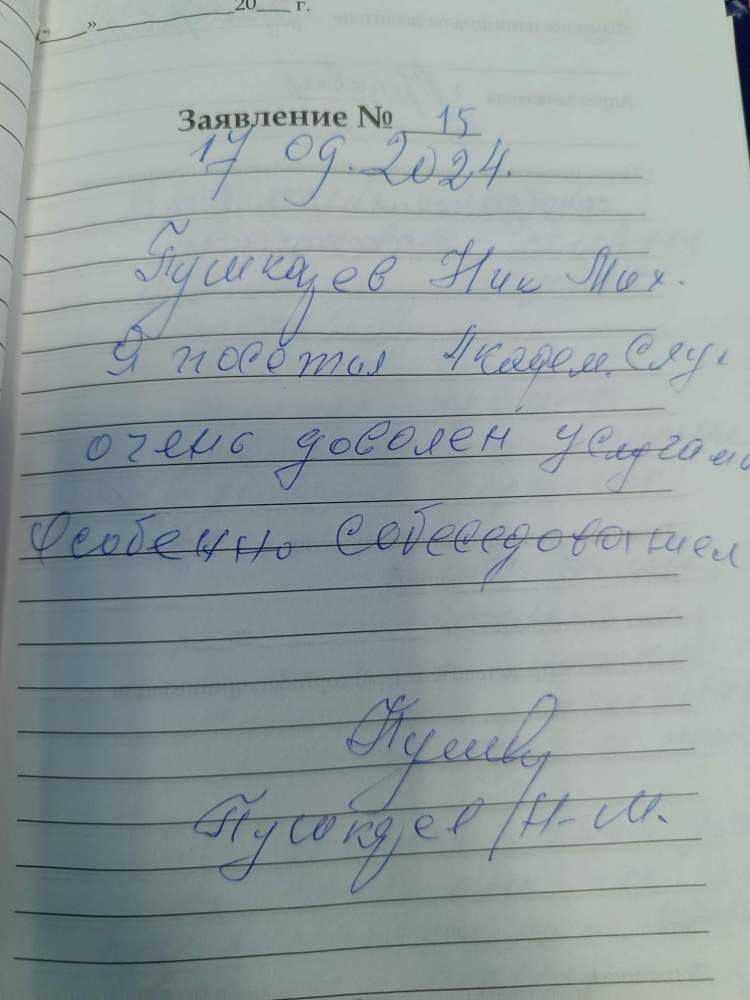 «____»____________20___ г.
Заявление № 15
17 09. 2024.
Пушкарев Ник Мих.
Я посетил Академ. Слу
очень доволен услугами
Особенно собеседованием
Пушкарев Н-М.